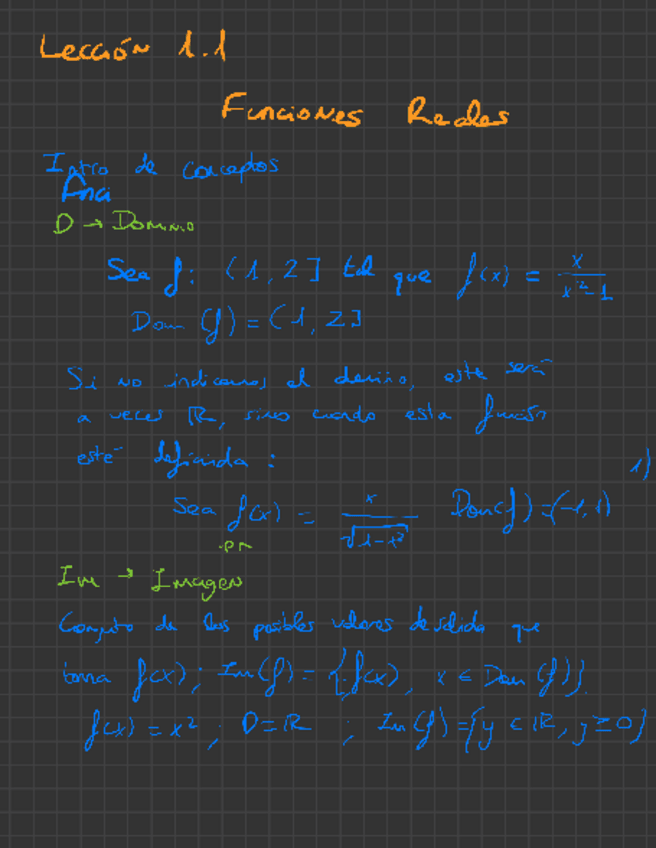 Lección 1.1
Funciones Reales
Intro de conceptos
D → Dominio
Sea f: (1, 2] tal que f(x) = x/(x²-1)
Dom (f) = (1, 2]
Si no indicamos el dominio, este será
a veces ℝ, sino cuando esta función
esté definida:
1)
Sea f(x) = x/√(1-x²) Dom(f) = (-1, 1)
Im → Imagen
Conjunto de los posibles valores de salida que
toma f(x); Im(f) = {f(x), x ∈ Dom (f)}
f(x) = x²; D = ℝ; Im(f) = {y ∈ ℝ, y ≥ 0}